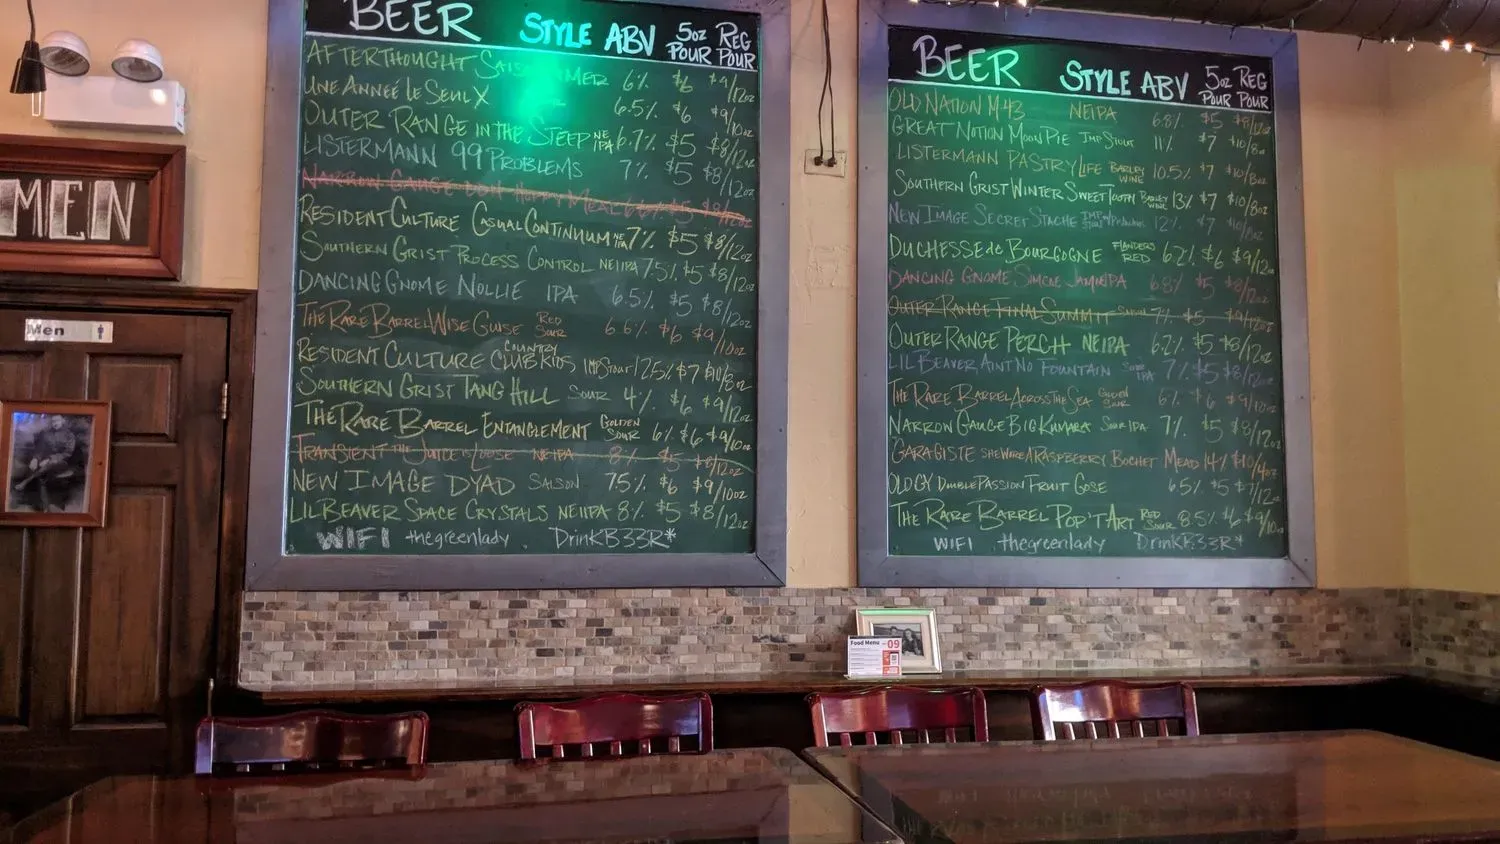 BEER STYLE ABV 5oz POUR REG POUR
AFTERTHOUGHT 6% $6 $9/12oz
UNE ANNÉE LE SEUL X 6.5% $6 $9/10oz
OUTER RANGE IN THE STEEP NE IPA 6.7% $5 $8/12oz
LISTERMANN 99 PROBLEMS 7% $5 $8/12oz
NARROW GAUGE DDH HAPPY MEAL 6.6% $5 $8/12oz
RESIDENT CULTURE CASUAL CONTINUUM NE IPA 7% $5 $8/12oz
SOUTHERN GRIST PROCESS CONTROL NEIIPA 7.5% $5 $8/12oz
DANCING GNOME NOLLIE IPA 6.5% $5 $8/12oz
THE RARE BARREL WISE GUISE RED SOUR 6.6% $6 $9/10oz
RESIDENT CULTURE COUNTRY CLUB KIDS IMP STOUT 12.5% $7 $10/8oz
SOUTHERN GRIST TANG HILL SOUR 4% $6 $9/12oz
THE RARE BARREL ENTANGLEMENT GOLDEN SOUR 6% $6 $9/10oz
TRANSIENT THE JUICE IS LOOSE NEIPA 8% $5 $8/12oz
NEW IMAGE DYAD SAISON 7.5% $6 $9/10oz
LIL BEAVER SPACE CRYSTALS NEIIPA 8% $5 $8/12oz
WIFI thegreenlady DrinkB33R*
BEER STYLE ABV 5oz POUR REG POUR
OLD NATION M43 NEIPA 6.8% $5 $8/12oz
GREAT NOTION MOON PIE IMP STOUT 11% $7 $10/8oz
LISTERMANN PASTRY LIFE BARLEY WINE 10.5% $7 $10/8oz
SOUTHERN GRIST WINTER SWEET TOOTH BARLEY WINE 13% $7 $10/8oz
NEW IMAGE SECRET STACHE IMP STOUT 12% $7 $10/8oz
DUCHESSE de BOURGOGNE FLANDERS RED 6.2% $6 $9/12oz
DANCING GNOME SIMCOE JAM IPA 6.8% $5 $8/12oz
OUTER RANGE FINAL SUMMIT 7% $5 $9/12oz
OUTER RANGE PERCH NEIPA 6.2% $5 $8/12oz
LIL BEAVER AINT NO FOUNTAIN SOUR IPA 7% $5 $8/12oz
THE RARE BARREL ACROSS THE SEA GOLDEN SOUR 6% $6 $9/10oz
NARROW GAUGE BIG KUMARA SOUR IPA 7% $5 $8/12oz
GARAGISTE SHE WEAR A RASPBERRY BOCHET MEAD 14% $10/4oz
OLD GY DOUBLE PASSION FRUIT GOSE 6.5% $5 $7/12oz
THE RARE BARREL POP'T ART RED SOUR 8.5% $6 $9/10oz
WIFI thegreenlady DrinkB33R*
MEN
Men
Food Menu 09